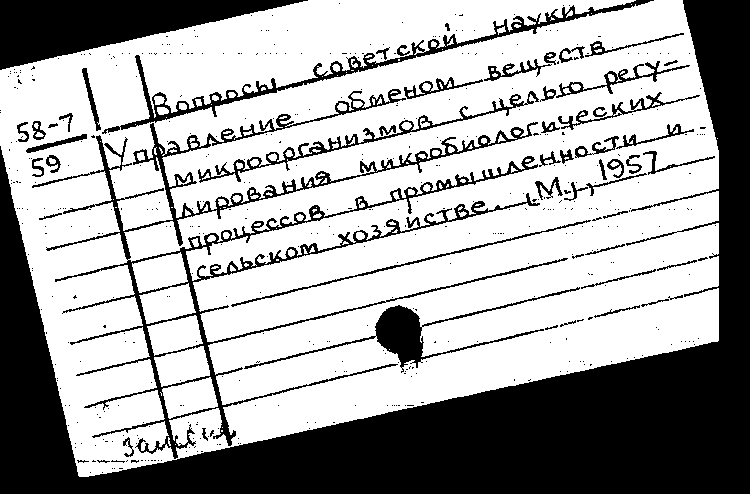 Вопросы советской науки.
58-7
59
Управление обменом веществ
микроорганизмов с целью регу-
лирования микробиологических
процессов в промышленности и
сельском хозяйстве. [М.], 1957.